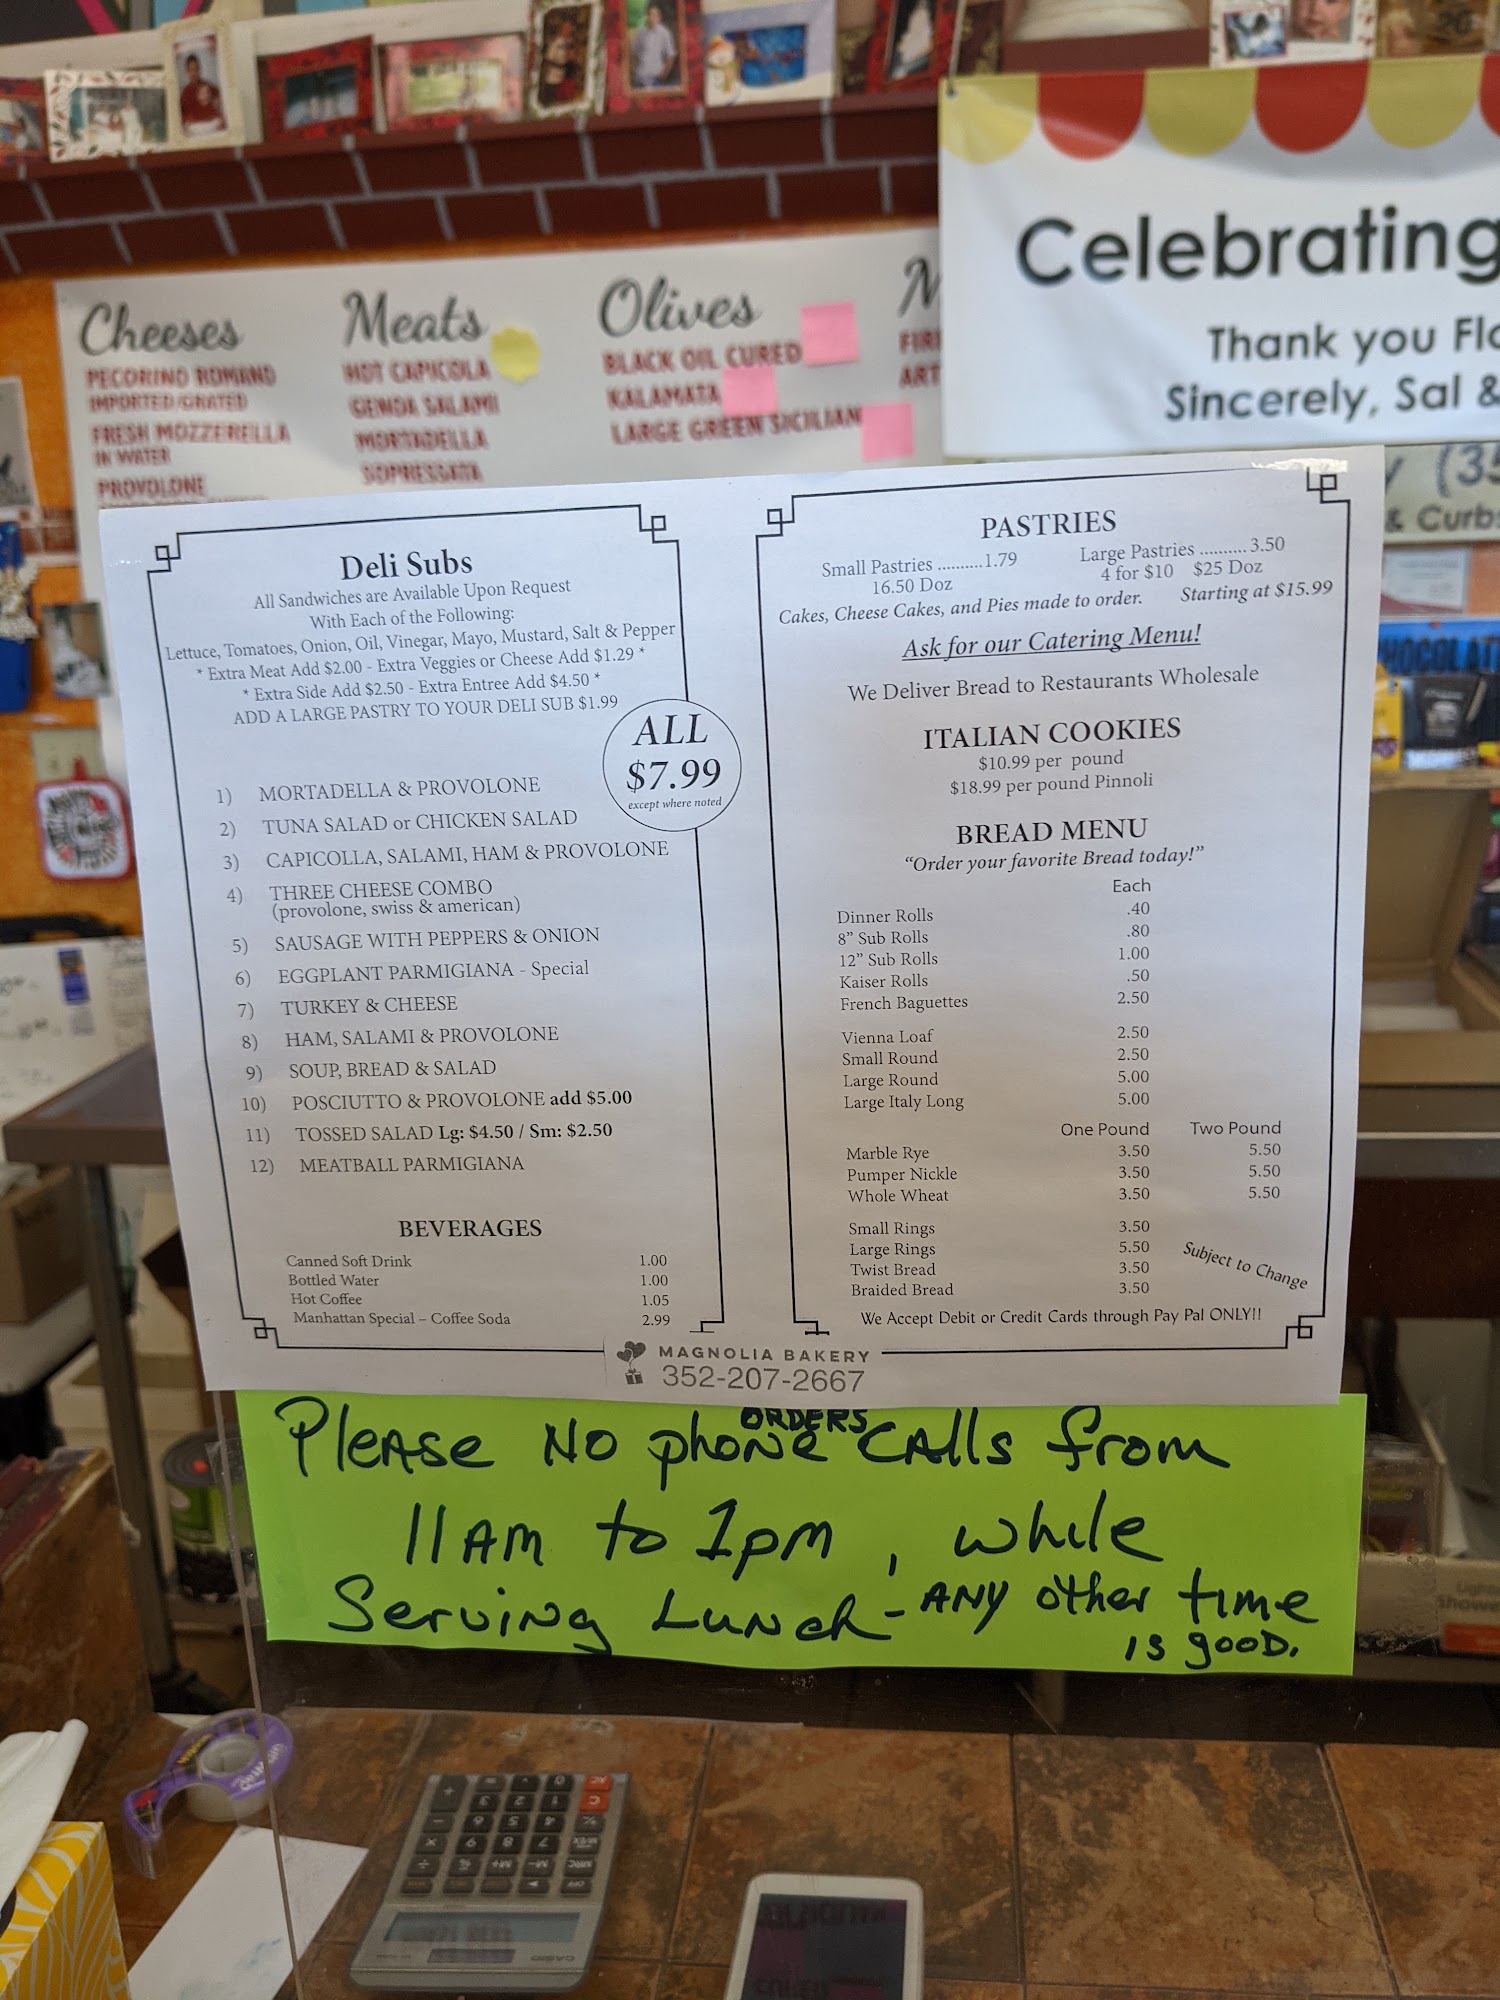 Cheeses
PECORINO ROMANO
IMPORTED/GRATED
FRESH MOZZERELLA
IN WATER
PROVOLONE
Meats
HOT CAPICOLA
GENOA SALAMI
MORTADELLA
SOPRESSATA
Olives
BLACK OIL CURED
KALAMATA
LARGE GREEN SICILIAN
M
FIR
ART
Celebrating
Thank you Flo
Sincerely, Sal &
(35
& Curb
Deli Subs
All Sandwiches are Available Upon Request
With Each of the Following:
Lettuce, Tomatoes, Onion, Oil, Vinegar, Mayo, Mustard, Salt & Pepper
* Extra Meat Add $2.00 - Extra Veggies or Cheese Add $1.29 *
* Extra Side Add $2.50 - Extra Entree Add $4.50 *
ADD A LARGE PASTRY TO YOUR DELI SUB $1.99
ALL
$7.99
except where noted
1) MORTADELLA & PROVOLONE
2) TUNA SALAD or CHICKEN SALAD
3) CAPICOLLA, SALAMI, HAM & PROVOLONE
4) THREE CHEESE COMBO
(provolone, swiss & american)
5) SAUSAGE WITH PEPPERS & ONION
6) EGGPLANT PARMIGIANA - Special
7) TURKEY & CHEESE
8) HAM, SALAMI & PROVOLONE
9) SOUP, BREAD & SALAD
10) POSCIUTTO & PROVOLONE add $5.00
11) TOSSED SALAD Lg: $4.50 / Sm: $2.50
12) MEATBALL PARMIGIANA
BEVERAGES
Canned Soft Drink 1.00
Bottled Water 1.00
Hot Coffee 1.05
Manhattan Special – Coffee Soda 2.99
PASTRIES
Small Pastries ..........1.79 Large Pastries ..........3.50
16.50 Doz 4 for $10 $25 Doz
Cakes, Cheese Cakes, and Pies made to order. Starting at $15.99
Ask for our Catering Menu!
We Deliver Bread to Restaurants Wholesale
ITALIAN COOKIES
$10.99 per pound
$18.99 per pound Pinnoli
BREAD MENU
“Order your favorite Bread today!”
Each
Dinner Rolls .40
8” Sub Rolls .80
12” Sub Rolls 1.00
Kaiser Rolls .50
French Baguettes 2.50
Vienna Loaf 2.50
Small Round 2.50
Large Round 5.00
Large Italy Long 5.00
One Pound Two Pound
Marble Rye 3.50 5.50
Pumper Nickle 3.50 5.50
Whole Wheat 3.50 5.50
Small Rings 3.50
Large Rings 5.50
Twist Bread 3.50
Braided Bread 3.50
Subject to Change
We Accept Debit or Credit Cards through Pay Pal ONLY!!
MAGNOLIA BAKERY
352-207-2667
ORDERS
Please No phone calls from
11AM to 1pm, while
Serving Lunch - ANY other time
is good.
CASIO